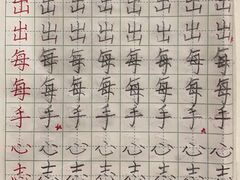 出出出出出出出出
出出出出出出出出
每每每每每每每每
每每每每每每每每
手手手手手手手手
心心心心心心心心
志志志志志志志志